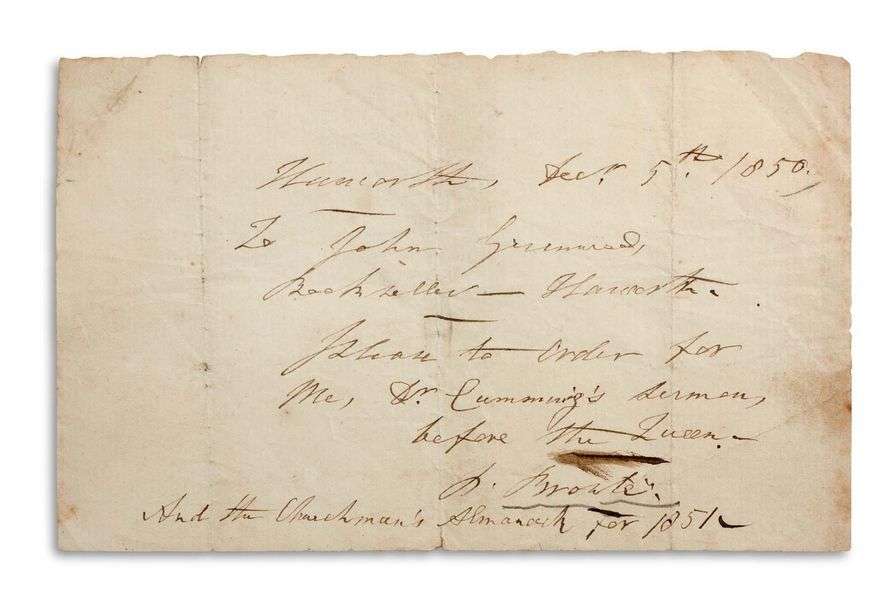 Haworth, Decr. 5th. 1850,
To John Greenwood,
Bookseller — Haworth.
Please to order for
Me, Dr. Cumming's sermon,
before the Queen.
P. Brontë.
And the Churchman's Almanack for 1851.